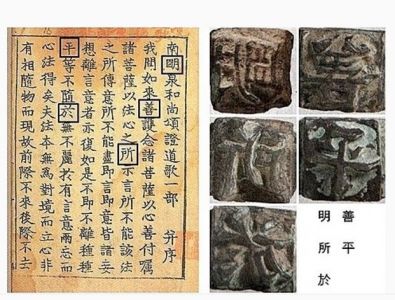 南明泉和尚頌證道歌一部 并序
我聞如來善護念諸菩薩以心善付囑
諸菩薩以法心之所示言所不能該法
之所傳意所不能盡即言即意皆諸妄
想離言意者亦復如是不即不離種種
平等不隨於無不麗於有言意兩忘而
心法得矣夫法本無為對境而立心非
有相隨物而現故前際不來後際不
善平
明所於